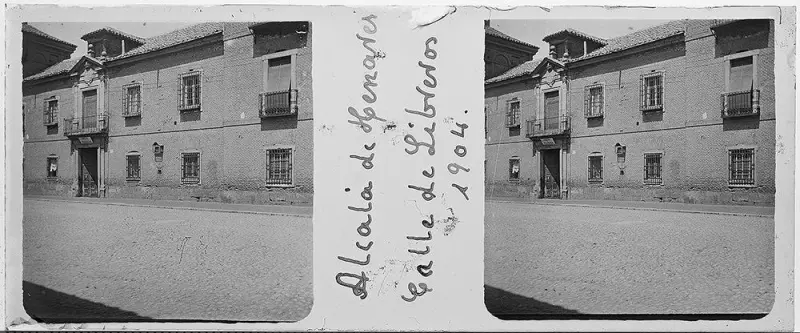 Alcalá de Henares
Calle de Libreros
1904.